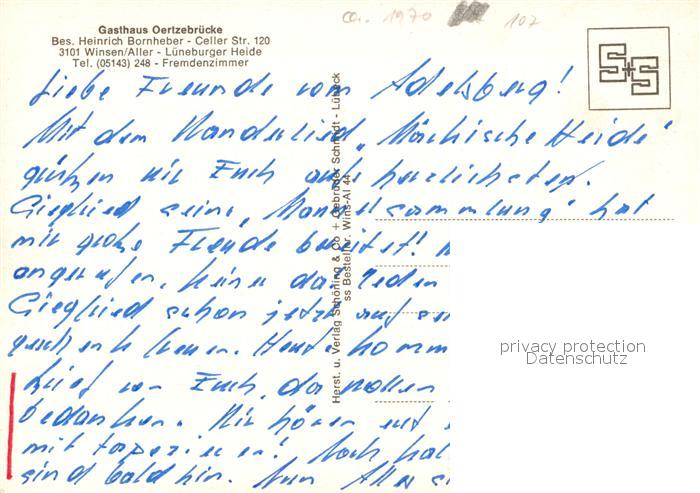 Gasthaus Oertzebrücke
Bes. Heinrich Bornheber - Celler Str. 120
3101 Winsen/Aller - Lüneburger Heide
Tel. (05143) 248 - Fremdenzimmer
ca. 1970
102
S+S
Liebe Freunde von Adelsberg!
Mit dem Wanderlied "Märkische Heide"
grüßen wir Euch aufs herzlichsten.
Siegfried seine "Mantelsammlung" hat
mir große Freude bereitet!
angerufen, keiner da.
Siegfried schon jetzt auf
Heute
Brief von Euch, da wollen
bedanken. Wir hören
mit Noch
sind bald hin. Nun Alles
Herst. u. Verlag Schöning & Co + Gebrüder Schmidt - Lübeck
ss Bestellnr. Wins-Al 44
privacy protection
Datenschutz